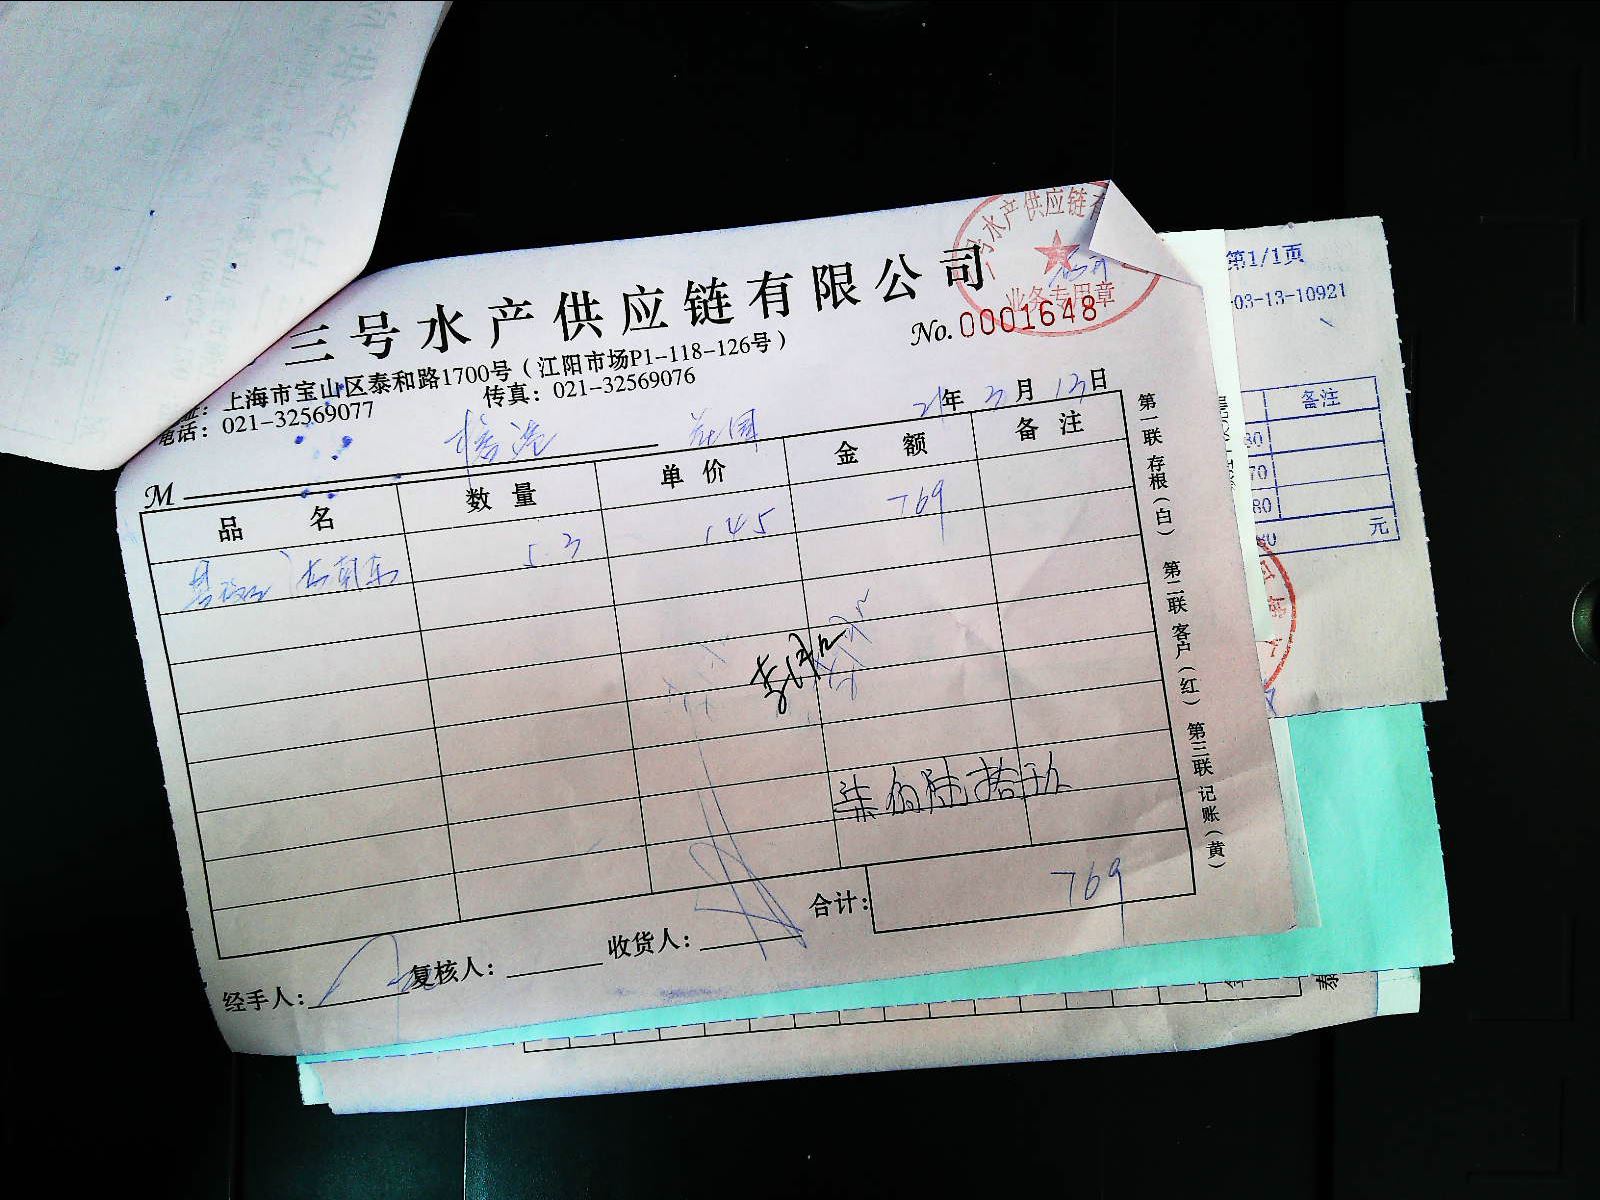 三号水产供应链有限公司
号水产供应链有
业务专用章
No. 0001648
址：上海市宝山区泰和路1700号（江阳市场P1-118-126号）
电话：021-32569077 传真：021-32569076
21年3月13日
M
品名 数量 单价 金额 备注
5.3 145 769
柒佰陆拾玖
合计： 769
经手人： 复核人： 收货人：
第一联 存根（白） 第二联 客户（红） 第三联 记账（黄）
第1/1页
03-13-10921
备注
80
70
80
元